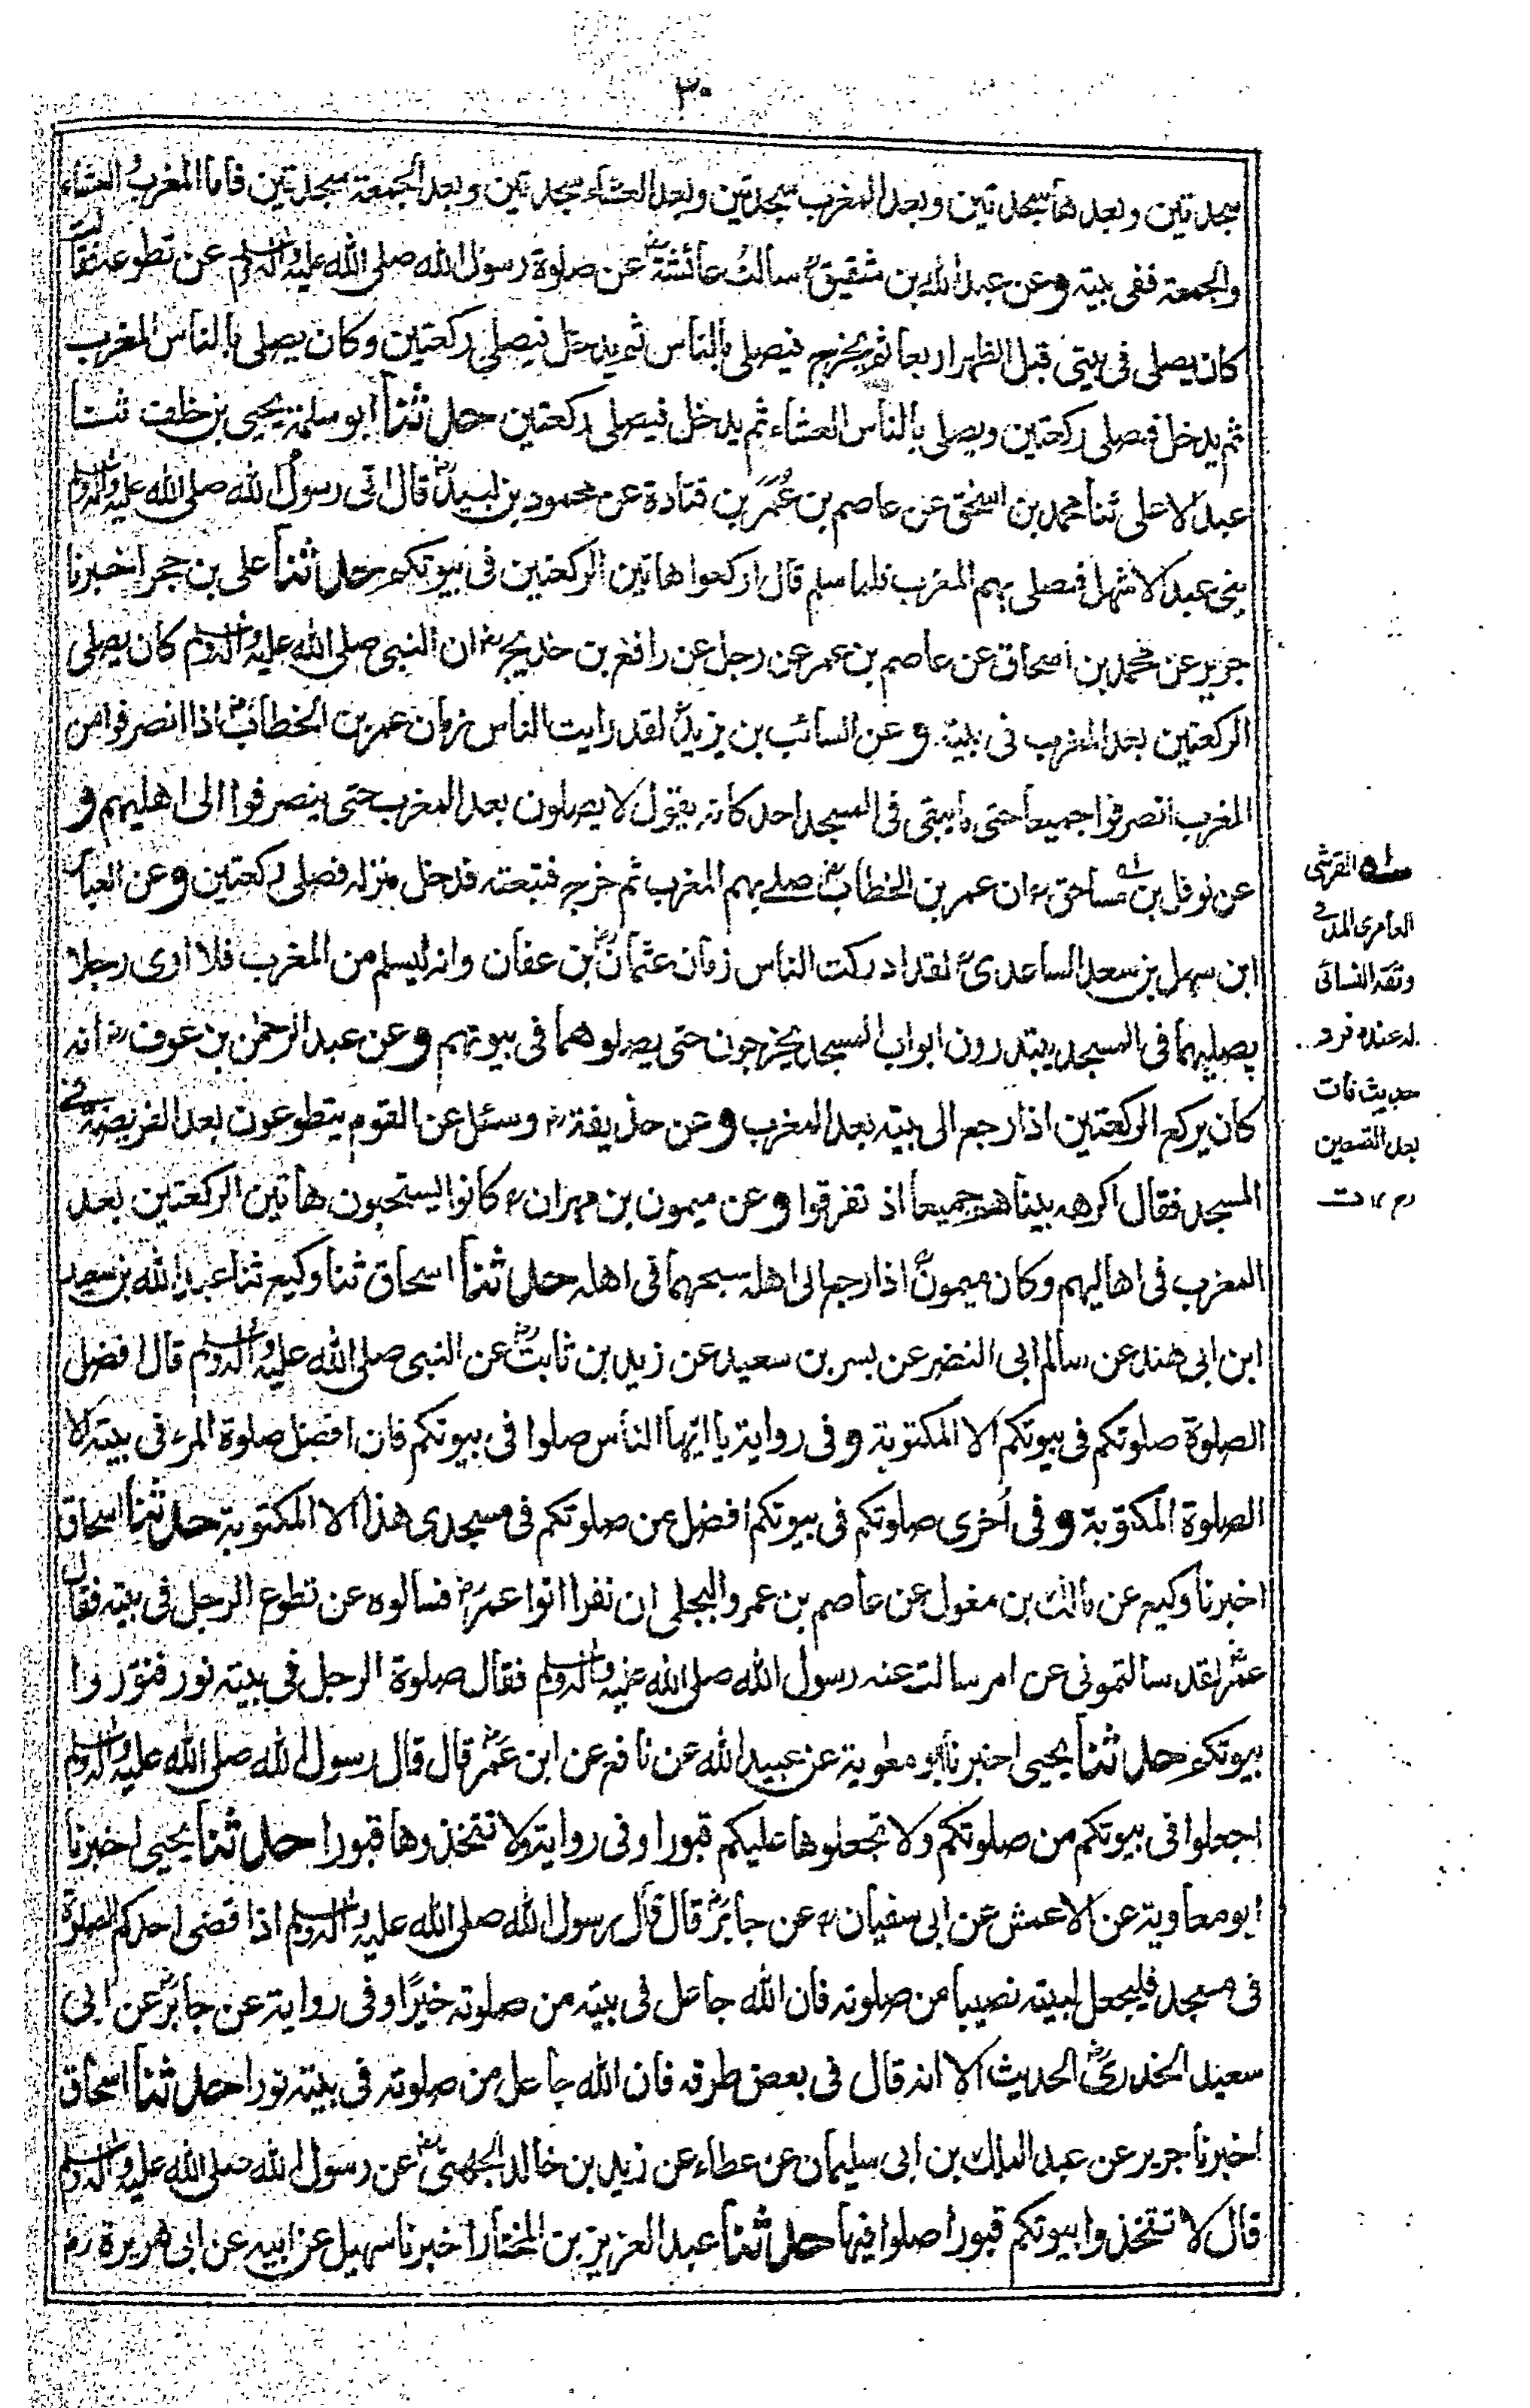 ٣٠
سجدتين وبعدها سجدتين وبعد المغرب سجدتين وبعد العشاء سجدتين وبعد الجمعة سجدتين فاما المغرب والعشاء
والجمعة ففى بيته وعن عبد الله بن شقيق سالت عائشة عن صلوة رسول الله صلى الله عليه واله وسلم عن تطوعه فقالت
كان يصلى فى بيتى قبل الظهر اربعا ثم يخرج فيصلى بالناس ثم يدخل فيصلى ركعتين وكان يصلى بالناس المغرب
ثم يدخل فيصلى ركعتين ويصلى بالناس العشاء ثم يدخل فيصلى ركعتين حدثنا ابو سلمة يحيى بن خلف ثنا
عبد الاعلى ثنا محمد بن اسحق عن عاصم بن عمر بن قتادة عن محمود بن لبيد قال اتى رسول الله صلى الله عليه واله وسلم
بنى عبد الاشهل فصلى بهم المغرب فلما سلم قال اركعوا هاتين الركعتين فى بيوتكم حدثنا على بن حجر اخبرنا
جرير عن محمد بن اسحاق عن عاصم بن عمر عن رجل عن رافع بن خديج ان النبى صلى الله عليه واله وسلم كان يصلى
الركعتين بعد المغرب فى بيته وعن السائب بن يزيد لقد رايت الناس زمان عمر بن الخطاب اذا انصرفوا من
المغرب انصرفوا جميعا حتى ما يبقى فى المسجد احد كانه يقول لا يصلون بعد المغرب حتى ينصرفوا الى اهليهم و
عن نوفل بن مساحق ان عمر بن الخطاب صلے بهم المغرب ثم خرج فتبعته فدخل منزله فصلى ركعتين وعن العباس
ابن سهل بن سعد الساعدى لقد ادركت الناس زمان عثمان بن عفان وانه ليسلم من المغرب فلا ارى رجلا
يصليهما فى المسجد يبتدرون ابواب المسجد يخرجون حتى يصلوهما فى بيوتهم وعن عبد الرحمن بن عوف انه
كان يركع الركعتين اذا رجع الى بيته بعد المغرب وعن حذيفة وسئل عن القوم يتطوعون بعد الفريضة فى
المسجد فقال اكرهه بيناهم جميعا اذ تفرقوا وعن ميمون بن مهران كانوا يستحبون هاتين الركعتين بعد
المغرب فى اهاليهم وكان ميمون اذا رجع الى اهله سبحهما فى اهله حدثنا اسحاق ثنا وكيع ثنا عبد الله بن سعيد
ابن ابى هند عن سالم ابى النضر عن بسر بن سعيد عن زيد بن ثابت عن النبى صلى الله عليه واله وسلم قال افضل
الصلوة صلوتكم فى بيوتكم الا المكتوبة وفى رواية يا ايها الناس صلوا فى بيوتكم فان افضل صلوة المرء فى بيته الا
الصلوة المكتوبة وفى اخرى صلوتكم فى بيوتكم افضل من صلوتكم فى مسجدى هذا الا المكتوبة حدثنا اسحاق
اخبرنا وكيع عن مالك بن مغول عن عاصم بن عمرو البجلى ان نفرا اتوا عمر فسالوه عن تطوع الرجل فى بيته فقال
عمر لقد سالتمونى عن امر سالت عنه رسول الله صلى الله عليه واله وسلم فقال صلوة الرجل فى بيته نور فنوروا
بيوتكم حدثنا يحيى اخبرنا ابو معوية عن عبيد الله عن نافع عن ابن عمر قال قال رسول الله صلى الله عليه واله وسلم
اجعلوا فى بيوتكم من صلوتكم ولا تجعلوها عليكم قبورا وفى رواية ولا تتخذوها قبورا حدثنا يحيى اخبرنا
ابو معاوية عن الاعمش عن ابى سفيان عن جابر قال قال رسول الله صلى الله عليه واله وسلم اذا قضى احدكم الصلوة
فى مسجد فليجعل لبيته نصيبا من صلوته فان الله جاعل فى بيته من صلوته خيرا وفى رواية عن جابر عن ابى
سعيد الخدرى الحديث الا انه قال فى بعض طرقه فان الله جاعل من صلوته فى بيته نورا حدثنا اسحاق
اخبرنا جرير عن عبد الملك بن ابى سليمان عن عطاء عن زيد بن خالد الجهنى عن رسول الله صلى الله عليه واله وسلم
قال لا تتخذوا بيوتكم قبورا صلوا فيها حدثنا عبد العزيز بن المختار اخبرنا سهيل عن ابيه عن ابى هريرة رض
القرشى
العامرى المدنى
وثقه النسائى
له عنده فرد
حديث مات
بعد التسعين